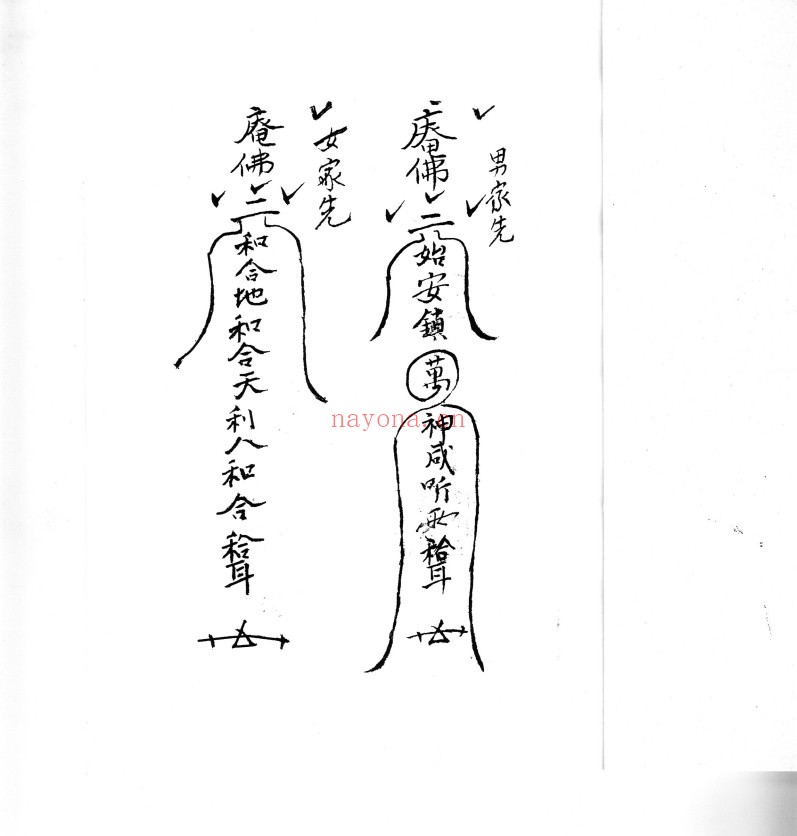 男家先
庵佛二始安鎮萬神咸听
女家先
庵佛二和合地和合天利人和合
nayona.cn